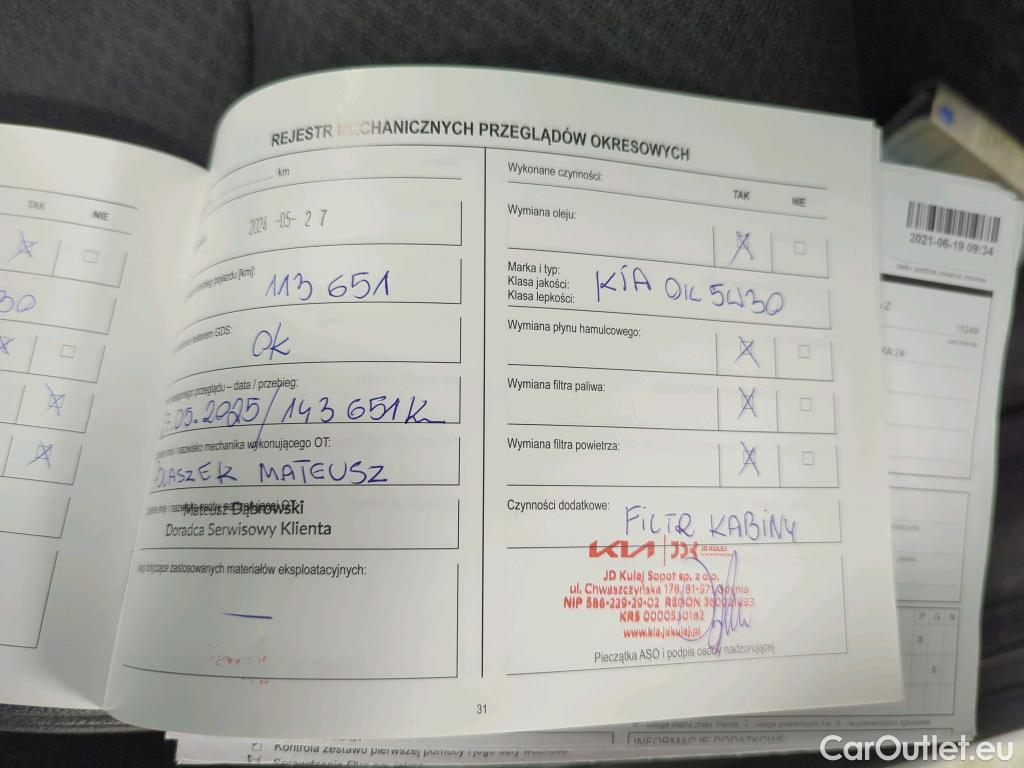 REJESTR MECHANICZNYCH PRZEGLĄDÓW OKRESOWYCH
km
2024 -05- 27
pojazdu [km]:
113 651
testerem GDS:
OK
przeglądu – data / przebieg:
.05.2025/143 651 K
i nazwisko mechanika wykonującego OT:
MATEUSZ
Mateusz Dąbrowski
Doradca Serwisowy Klienta
dotyczące zastosowanych materiałów eksploatacyjnych:
Wykonane czynności:
TAK NIE
Wymiana oleju:
Marka i typ:
Klasa jakości:
Klasa lepkości:
KIA OIL 5W30
Wymiana płynu hamulcowego:
Wymiana filtra paliwa:
Wymiana filtra powietrza:
Czynności dodatkowe:
FILTR KABINY
KIA JDK JD KULEJ
JD Kulej Sopot sp. z o.o.
ul. Chwaszczyńska Gdynia
NIP 586-229-29-02 REGON
KRS
www.kia.jdkulej.pl
Pieczątka ASO i podpis osoby nadzorującej
31
TAK NIE
30
2021-06-19 09:34
15249
KA 24
P G N
X
X
INFORMACJE DODATKOWE
Kontrola zestawu pierwszej pomocy i jego daty ważności
CarOutlet.eu